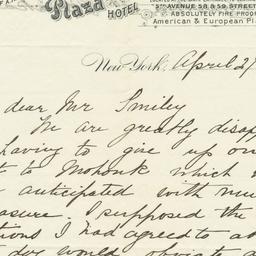 Plaza
HOTEL
5TH AVENUE 58 & 59 STREETS
ABSOLUTELY FIRE PROOF
American & European Pl
New York, April 2
dear Mr Smiley
We are greatly disapp
having to give up ou
to Mohonk which w
anticipated with mu
asure. I supposed the
tions I had agreed to a
day would obviate a